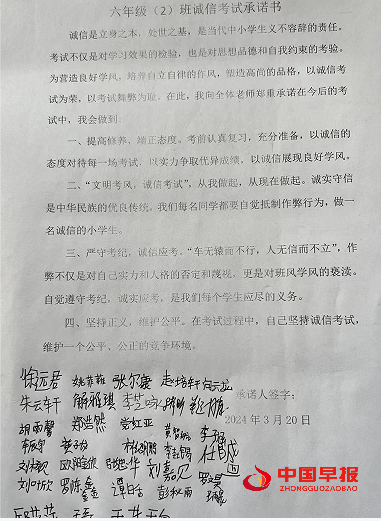 六年级（2）班诚信考试承诺书
诚信是立身之本，处世之基，是当代中小学生义不容辞的责任。
考试不仅是对学习效果的检验，也是对思想品德和自我约束的考验。
为营造良好学风，培养自立自律的作风，塑造高尚的品格，以诚信考
试为荣，以考试舞弊为耻。在此，我向全体老师郑重承诺在今后的考
试中，我会做到：
一、提高修养、端正态度。考前认真复习，充分准备，以诚信的
态度对待每一场考试，以实力争取优异成绩，以诚信展现良好学风。
二、“文明考风，诚信考试”，从我做起，从现在做起。诚实守信
是中华民族的优良传统，我们每名同学都要自觉抵制作弊行为，做一
名诚信的小学生。
三、严守考纪，诚信应考。“车无辕而不行，人无信而不立”，作
弊不仅是对自己实力和人格的否定和蔑视，更是对班风学风的亵渎。
自觉遵守考纪，诚实应考，是我们每个学生应尽的义务。
四、坚持正义，维护公平。在考试过程中，自己坚持诚信考试，
维护一个公平、公正的竞争环境。
姚菲菲 张尔康 赵培轩
承诺人签字：
朱云轩 解雅琪
2024年3月20日
胡雨馨 郑浩然
刘嘉见
罗陈鑫 彭秋雨
中国早报
ZHONGGUOZAOBAO